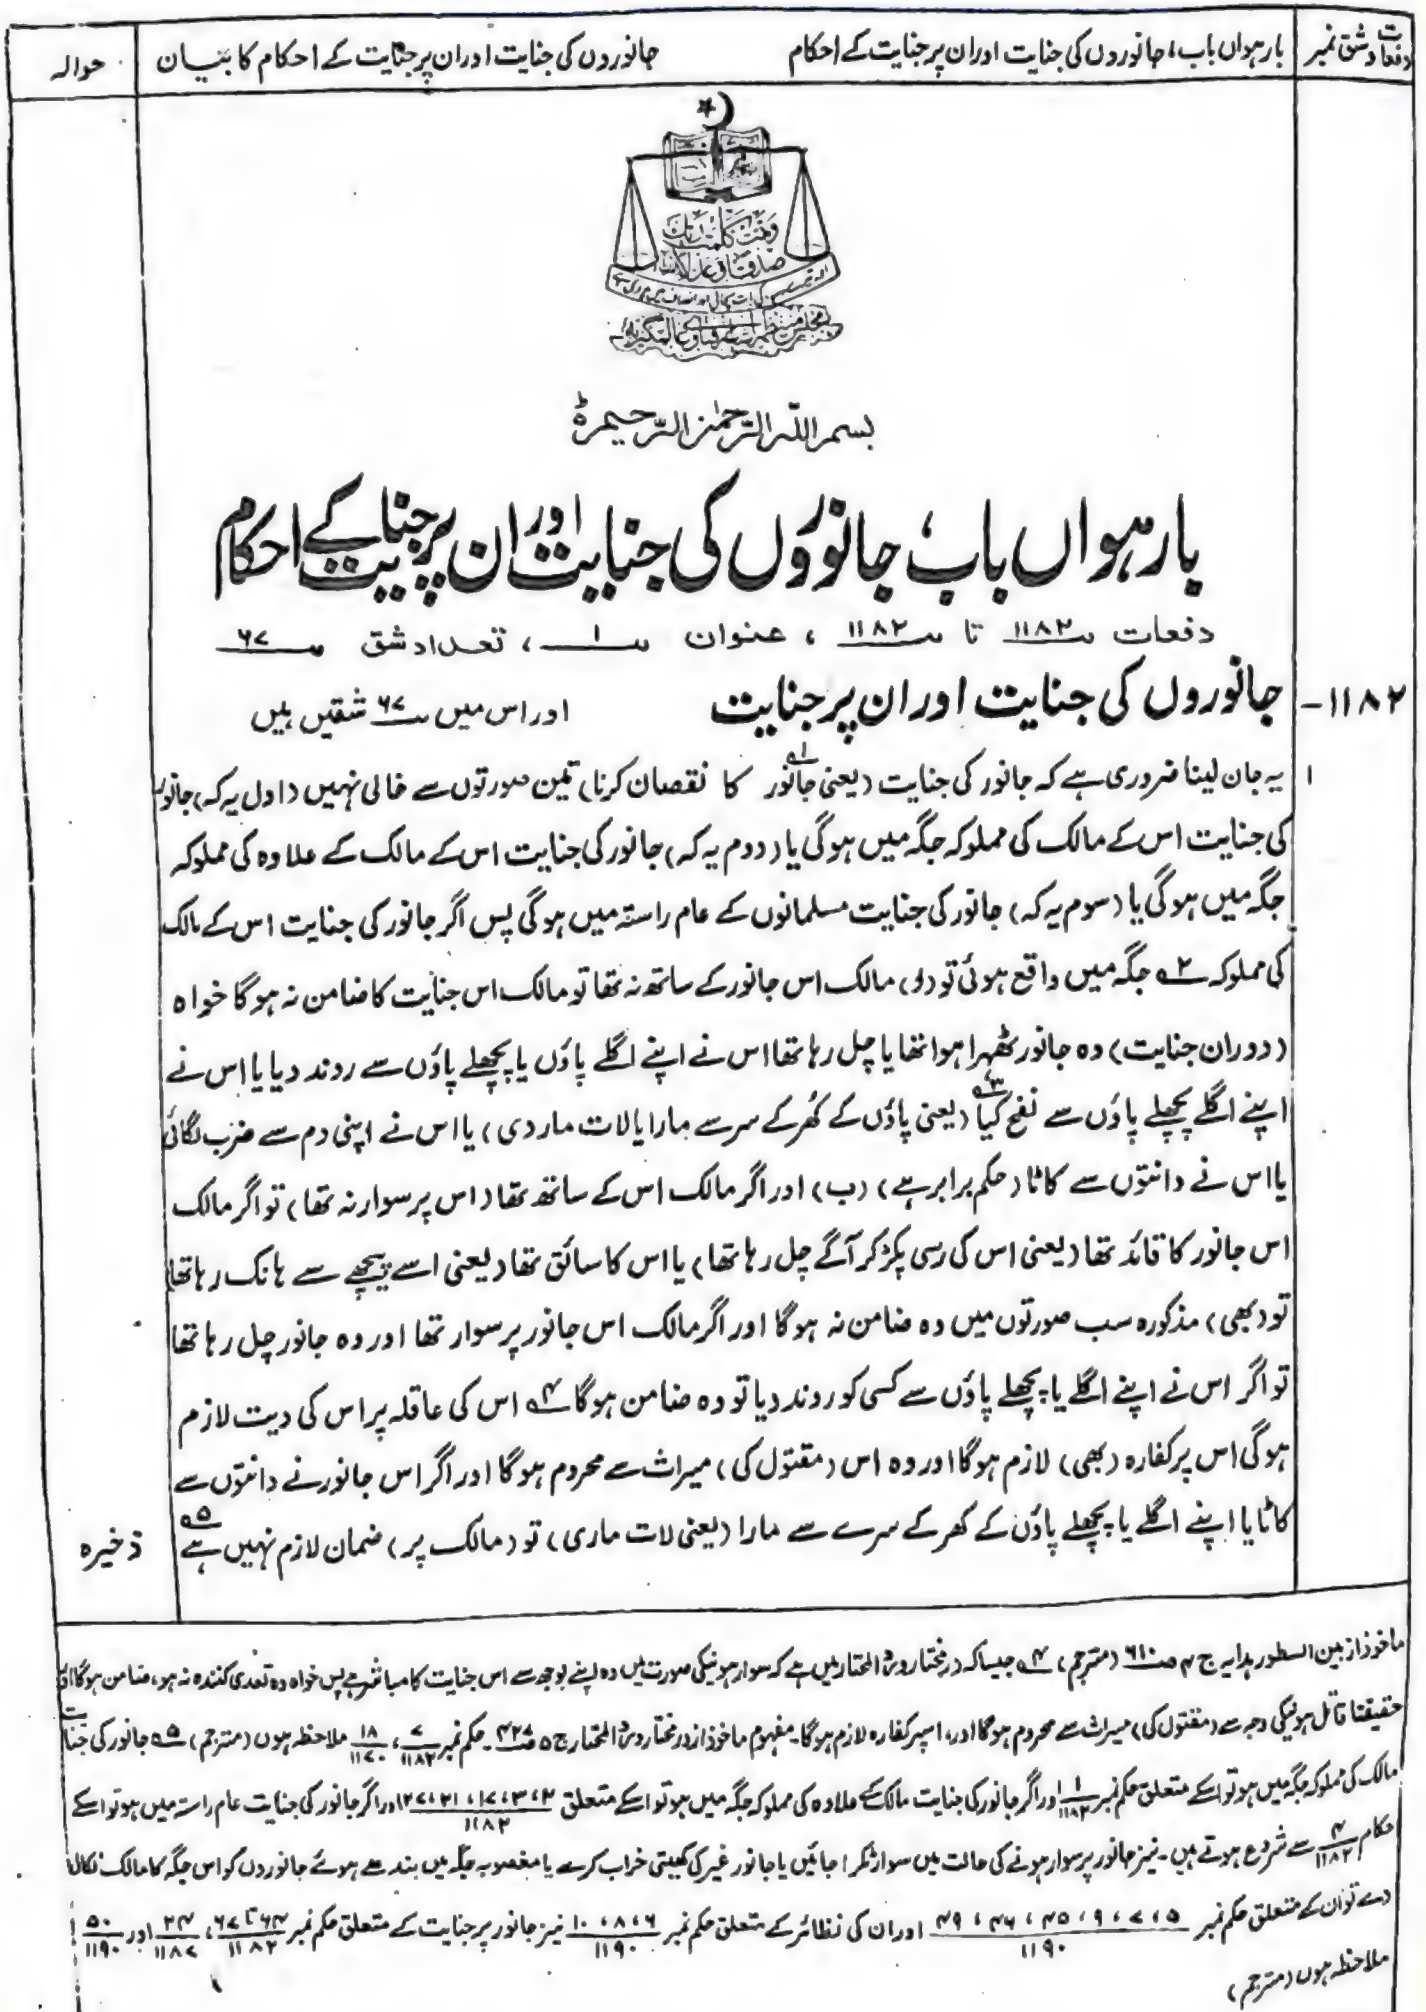 دفعات و شق نمبر
بارہواں باب، جانوروں کی جنایت اور ان پر جنایت کے احکام
جانوروں کی جنایت اور ان پر جنایت کے احکام کا بیان
حوالہ
وتمت کلمت ربک
صدقا وعدلا
بسم اللہ الرحمٰن الرحیم
بارہواں باب، جانوروں کی جنایت اور ان پر جنایت کے احکام
دفعات ؁۱۱۸۲ تا ؁۱۱۸۲ ، عنوان ؁۱ ، تعداد شق ؁۶۷
۱۱۸۲- جانوروں کی جنایت اور ان پر جنایت اور اس میں ؁۶۷ شقیں ہیں
۱ یہ جان لینا ضروری ہے کہ جانور کی جنایت (یعنی جانور؁۱ کا نقصان کرنا) تین صورتوں سے خالی نہیں (اول یہ کہ) جانور
کی جنایت اس کے مالک کی مملوکہ جگہ میں ہوگی یا (دوم یہ کہ) جانور کی جنایت اس کے مالک کے علاوہ کی مملوکہ
جگہ میں ہوگی یا (سوم یہ کہ) جانور کی جنایت مسلمانوں کے عام راستہ میں ہوگی پس اگر جانور کی جنایت اس کے مالک
کی مملوکہ ؁۲ جگہ میں واقع ہوئی تو (ا) مالک اس جانور کے ساتھ نہ تھا تو مالک اس جنایت کا ضامن نہ ہوگا خواہ
(دوران جنایت) وہ جانور ٹھہرا ہوا تھا یا چل رہا تھا اس نے اپنے اگلے پاؤں یا پچھلے پاؤں سے روند دیا یا اس نے
اپنے اگلے پچھلے پاؤں سے نفح کیا؁۳ (یعنی پاؤں کے کُھر کے سر سے مارا یا لات مار دی) یا اس نے اپنی دم سے ضرب لگائی
یا اس نے دانتوں سے کاٹا (حکم برابر ہے) (ب) اور اگر مالک اس کے ساتھ تھا (اس پر سوار نہ تھا) تو اگر مالک
اس جانور کا قائد تھا (یعنی اس کی رسی پکڑ کر آگے چل رہا تھا) یا اس کا سائق تھا (یعنی اسے پیچھے سے ہانک رہا تھا)
تو (بھی) مذکورہ سب صورتوں میں وہ ضامن نہ ہوگا اور اگر مالک اس جانور پر سوار تھا اور وہ جانور چل رہا تھا
تو اگر اس نے اپنے اگلے یا پچھلے پاؤں سے کسی کو روند دیا تو وہ ضامن ہوگا ؁۴ اس کی عاقلہ پر اس کی دیت لازم
ہوگی اس پر کفارہ (بھی) لازم ہوگا اور وہ اس (مقتول کی) میراث سے محروم ہوگا اور اگر اس جانور نے دانتوں سے
کاٹا یا اپنے اگلے یا پچھلے پاؤں کے کھر کے سرے سے مارا (یعنی لات ماری) تو (مالک پر) ضمان لازم نہیں ہے؁۵
ذخیرہ
ماخوذ از بین السطور ہدایہ ج ۴ ص ۶۱۰ (مترجم) ؁۴ جیسا کہ درمختار و رد المحتار میں ہے کہ سوار ہونیکی صورت میں وہ اپنے بوجھ سے اس جنایت کا مباشر ہے پس خواہ وہ تعدی کنندہ نہ ہو، ضامن ہوگا اور
حقیقتا قاتل ہونیکی وجہ سے (مقتول کی) میراث سے محروم ہوگا اور، اسپر کفارہ لازم ہوگا۔ مفہوم ماخوذ از درمختار و رد المحتار ج ۵ ص ۴۲۷ ۔ حکم نمبر ۷/۱۱۸۲ ، ۱۸/۱۱۷۰ ملاحظہ ہوں (مترجم) ؁۵ جانور کی جنایت
مالک کی مملوکہ جگہ میں ہو تو اسکے متعلق حکم نمبر ۱/۱۱۸۲ اور اگر جانور کی جنایت مالک کے علاوہ کی مملوکہ جگہ میں ہو تو اسکے متعلق ۲، ۳، ۱۷، ۲۱، ۲۷/۱۱۸۲ اور اگر جانور کی جنایت عام راستہ میں ہو تو اسکے
احکام ۴/۱۱۸۲ سے شروع ہوتے ہیں۔ نیز جانور پر سوار ہونے کی حالت میں سوار ٹکرا جائیں یا جانور غیر کی کھیتی خراب کرے یا مغصوبہ جگہ میں بندھے ہوئے جانوروں کو اس جگہ کا مالک نکال
دے تو ان کے متعلق حکم نمبر ۵، ۷، ۹، ۴۵، ۴۶، ۴۹/۱۱۹۰ اور ان کی نظائر کے متعلق حکم نمبر ۶، ۸، ۱۰/۱۱۹۰ نیز جانور پر جنایت کے متعلق حکم نمبر ۶۴ تا ۶۷/۱۱۸۲ ، ۲۴/۱۱۸۷ اور ۵۰/۱۱۹۰
ملاحظہ ہوں (مترجم)